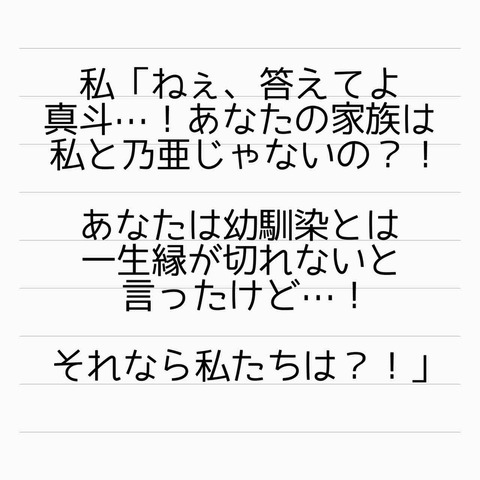 私「ねぇ、答えてよ
真斗…！あなたの家族は
私と乃亜じゃないの？！
あなたは幼馴染とは
一生縁が切れないと
言ったけど…！
それなら私たちは？！」